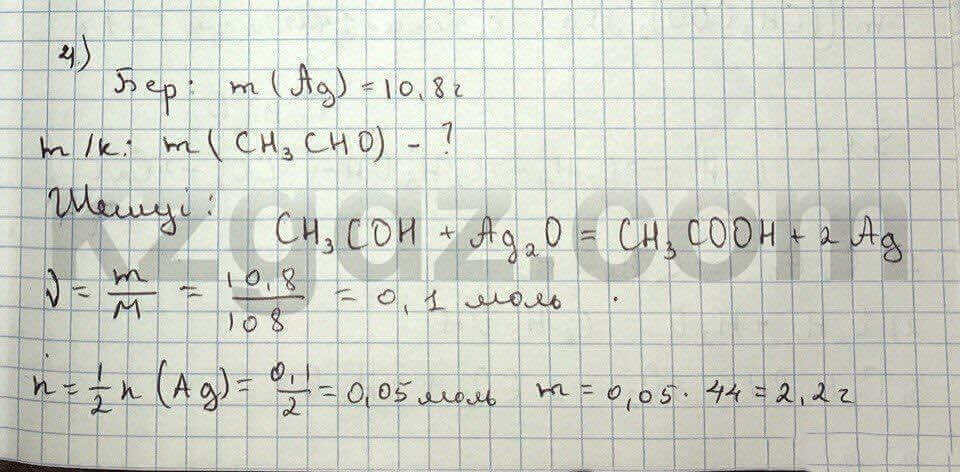 4)
Бер: m (Ag) = 10,8 г
m/к: m (CH₃CHO) - ?
Шешуі:
CH₃COH + Ag₂O = CH₃COOH + 2 Ag
ν = m/M = 10,8/108 = 0,1 моль .
n = 1/2 n (Ag) = 0,1/2 = 0,05 моль m = 0,05 · 44 = 2,2 г
kzgaz.com